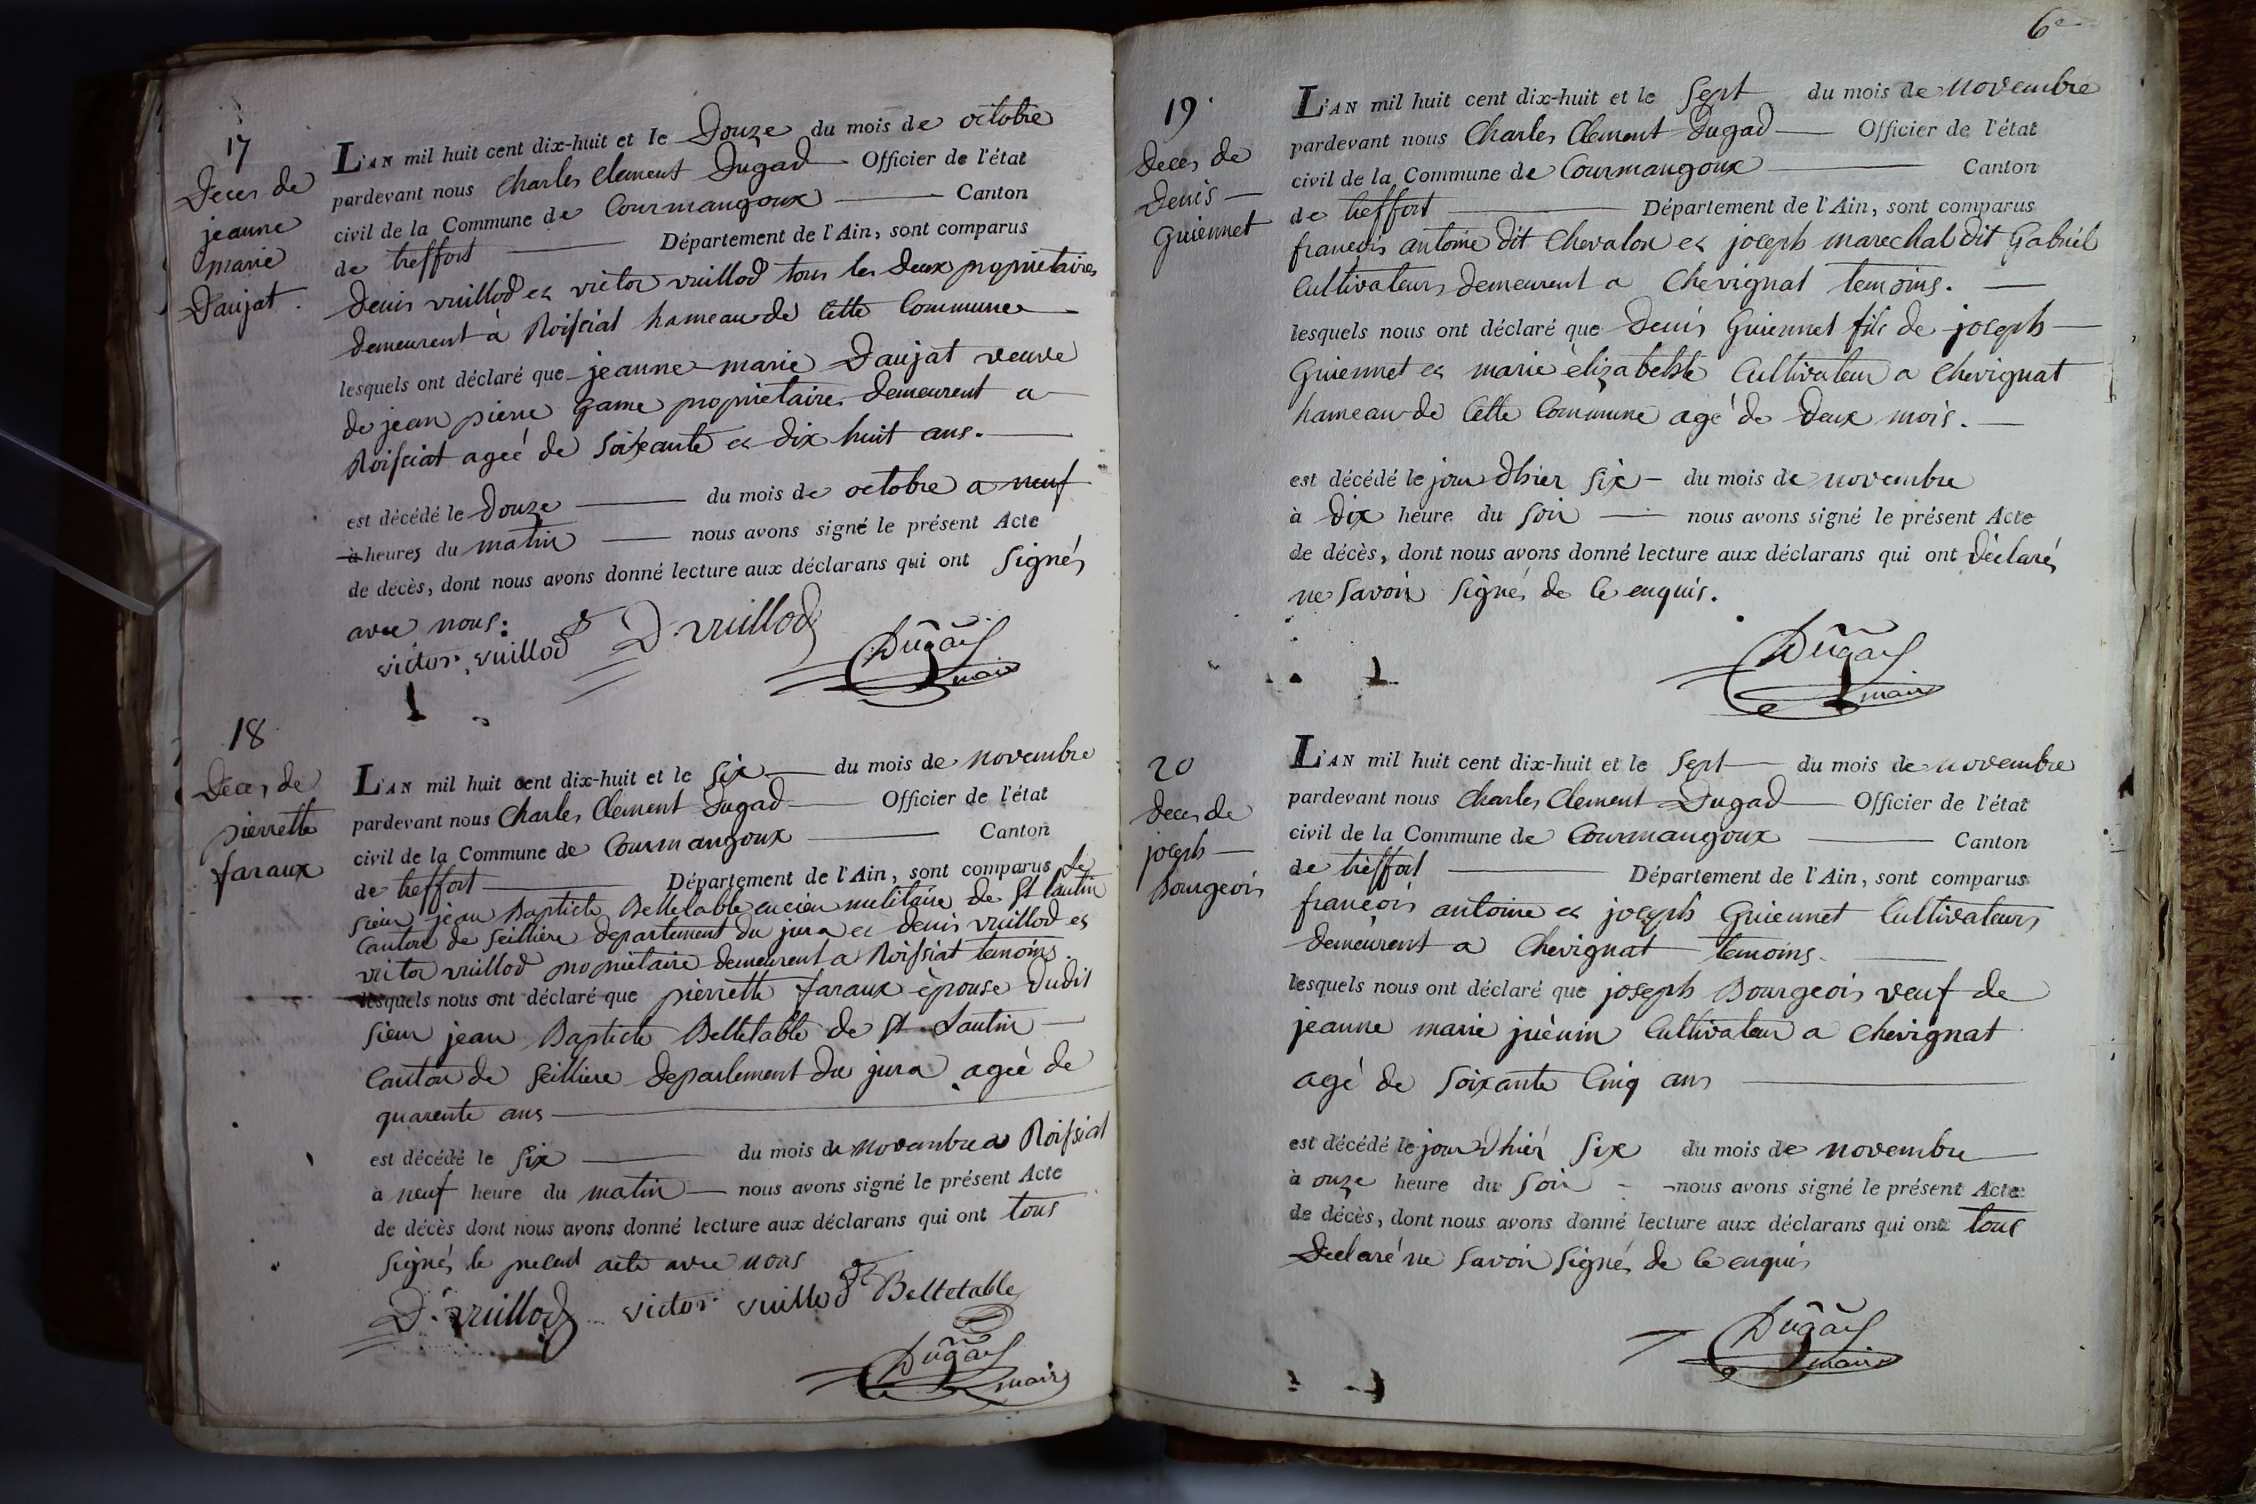 17
Deces de
jeanne
marie
Daujat.
L'AN mil huit cent dix-huit et le Douze du mois de octobre
pardevant nous Charles Clement Dugad Officier de l'état
civil de la Commune de Courmangoux Canton
de treffort Département de l'Ain, sont comparus
Denis vuillod et victor vuillod tous les deux propriétaires
demeurent à Roissiat hameau de Cette Commune
lesquels ont déclaré que jeanne marie Daujat veuve
de jean pierre Game propriétaire demeurent a
Roissiat ageé de soixante et dix huit ans.
est décédé le Douze du mois de octobre a neuf
à heures du matin nous avons signé le présent Acte
de décès, dont nous avons donné lecture aux déclarans qui ont signés
avec nous:
victor vuillod D. vuillod Dugad
maire
18
Deces de
pierrette
faraux
L'AN mil huit cent dix-huit et le six du mois de novembre
pardevant nous Charles Clement Dugad Officier de l'état
civil de la Commune de Courmangoux Canton
de treffort Département de l'Ain, sont comparus Le
sieur jean Baptiste Belletable encien militaire de St Lautin
Canton de Seilliere departement du jura et denis vuillod et
victor vuillod propriétaire demeurent a Roissiat temoins.
lesquels nous ont déclaré que pierrette faraux èpouse dudit
sieur jean Baptiste Belletable de St. Lautin
Canton de Seilliere departement du jura ageé de
quarente ans
est décédé le six du mois de novembre a Roissiat
à neuf heure du matin nous avons signé le présent Acte
de décès dont nous avons donné lecture aux déclarans qui ont tous
signés le present acte avec nous
D. vuillod victor vuillod Belletable
Dugad
maire
6e
19.
Deces de
Denis
Guiennet
L'AN mil huit cent dix-huit et le Sept du mois de novembre
pardevant nous Charles Clement Dugad Officier de l'état
civil de la Commune de Courmangoux Canton
de treffort Département de l'Ain, sont comparus
françois antoine dit Chevalon et joseph marechal dit Gabriel
Cultivateurs demeurent a Chevignat temoins.
lesquels nous ont déclaré que Denis Guiennet fils de joseph
Guiennet et marie èlizabelste Cultivateur a Chevignat
hameau de Cette Commune agé de Deux mois.
est décédé le jour dhier six du mois de novembre
à Dix heure du soir nous avons signé le présent Acte
de décès, dont nous avons donné lecture aux déclarans qui ont déclarés
ne savoir signés de ce enquis.
Dugad
maire
20
Deces de
joseph
Bourgeois
L'AN mil huit cent dix-huit et le sept du mois de novembre
pardevant nous Charles Clement Dugad Officier de l'état
civil de la Commune de Courmangoux Canton
de trèffort Département de l'Ain, sont comparus
françois antoine et joseph Guiennet Cultivateurs
demeurent a Chevignat temoins.
lesquels nous ont déclaré que joseph Bourgeois veuf de
jeanne marie juènin Cultivateur a Chevignat
agé de soixante Cinq ans
est décédé le jour dhiér six du mois de novembre
à onze heure du soir nous avons signé le présent Acte
de décès, dont nous avons donné lecture aux déclarans qui ont tous
Declaré ne savoir signés de ce enquis
Dugad
maire